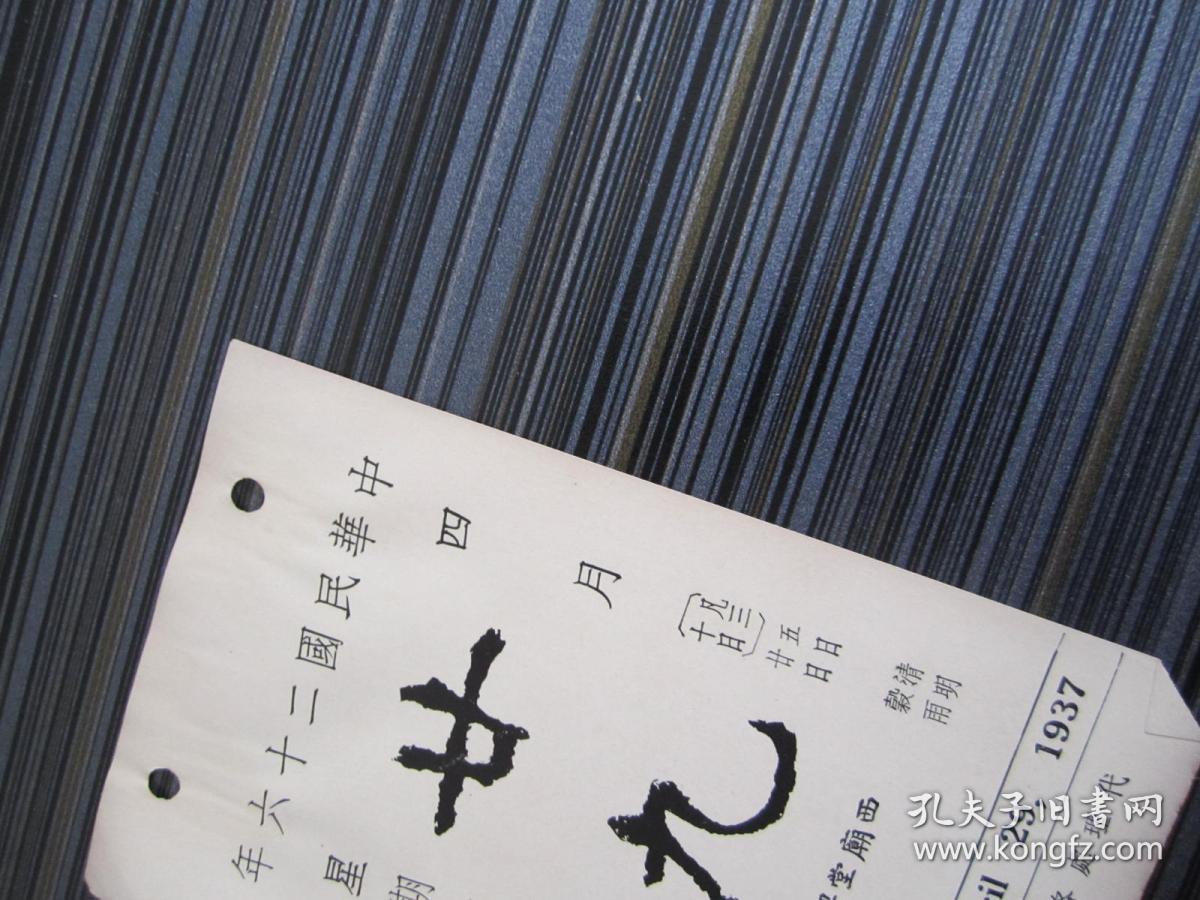 中華民國二十六年
四月
〔凡三十日〕
五日
廿日
清明
穀雨
廿九
星期
西廟堂
1937
29,
代
孔夫子旧書网
www.kongfz.com